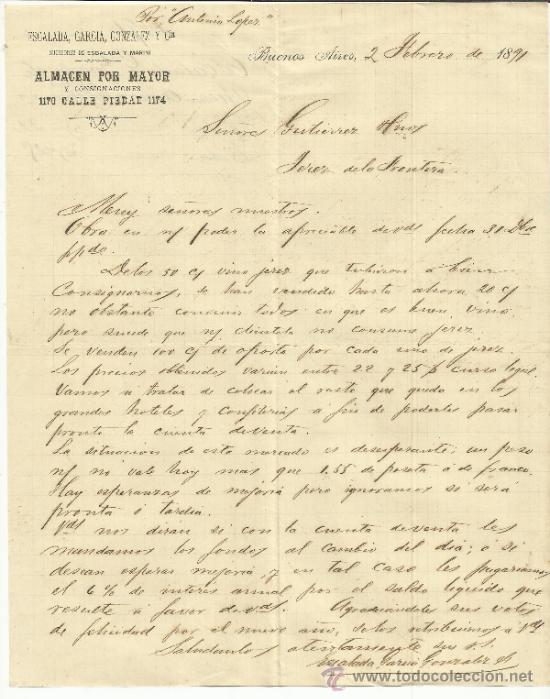 Por "Antonio Lopez"
ESCALADA, GARCIA, GONZALEZ Y Cia
SUCESORES DE ESCALADA Y MARINI
ALMACEN POR MAYOR
Y CONSIGNACIONES
1170 CALLE PIEDAD 1174
Buenos Aires, 2 Febrero de 1891
Señores Gutierrez Hnos
Jerez de la Frontera
Muy señores nuestros.
Obra en n/ poder la apreciable de vds fecha 30 Dbre
ppdo.
De los 50 c/ vino jerez que tubieron á bien
Consignarnos, se han vendido hasta ahora 20 c/
no obstante convenir todos en que es buen vino
pero sucede que n/ clientela no consume jerez
Se venden 100 c/ de oporto por cada uno de jerez
Los precios obtenidos varian entre 22 y 25 $ curso legal.
Vamos a tratar de colocar el resto que queda en los
grandes hoteles y Confiterias a fin de poderles pasar
pronto la cuenta de venta.
La situacion de este mercado es desesperante; un peso
n/ no vale hoy mas que 1.55 de peseta ó de franco.
Hay esperanzas de mejoria pero ignoramos si será
pronta ó tardia.
Vds nos diran si con la cuenta de venta les
mandamos los fondos al cambio del dia; ó si
desean esperar mejoria, y en tal caso les pagariamos
el 6 % de interes annual por el saldo liquido que
resulte a favor de vds. Agradeciendoles sus votos
de felicidad por el nuevo año, se los retribuimos a Vds
Saludandolos atentamente sus S.S.
Escalada Garcia Gonzalez
todocoleccion.net